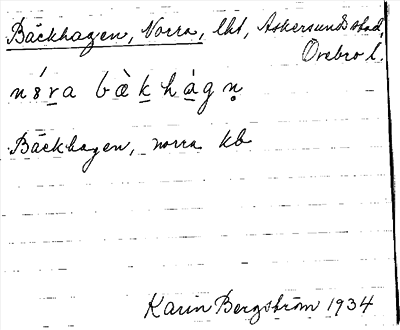 Bäckhagen, Norra, lht, Askersunds stad,
Örebro l.
bæ̀khàgn̥
Bäckhagen, norra kb
Karin Bergström 1934